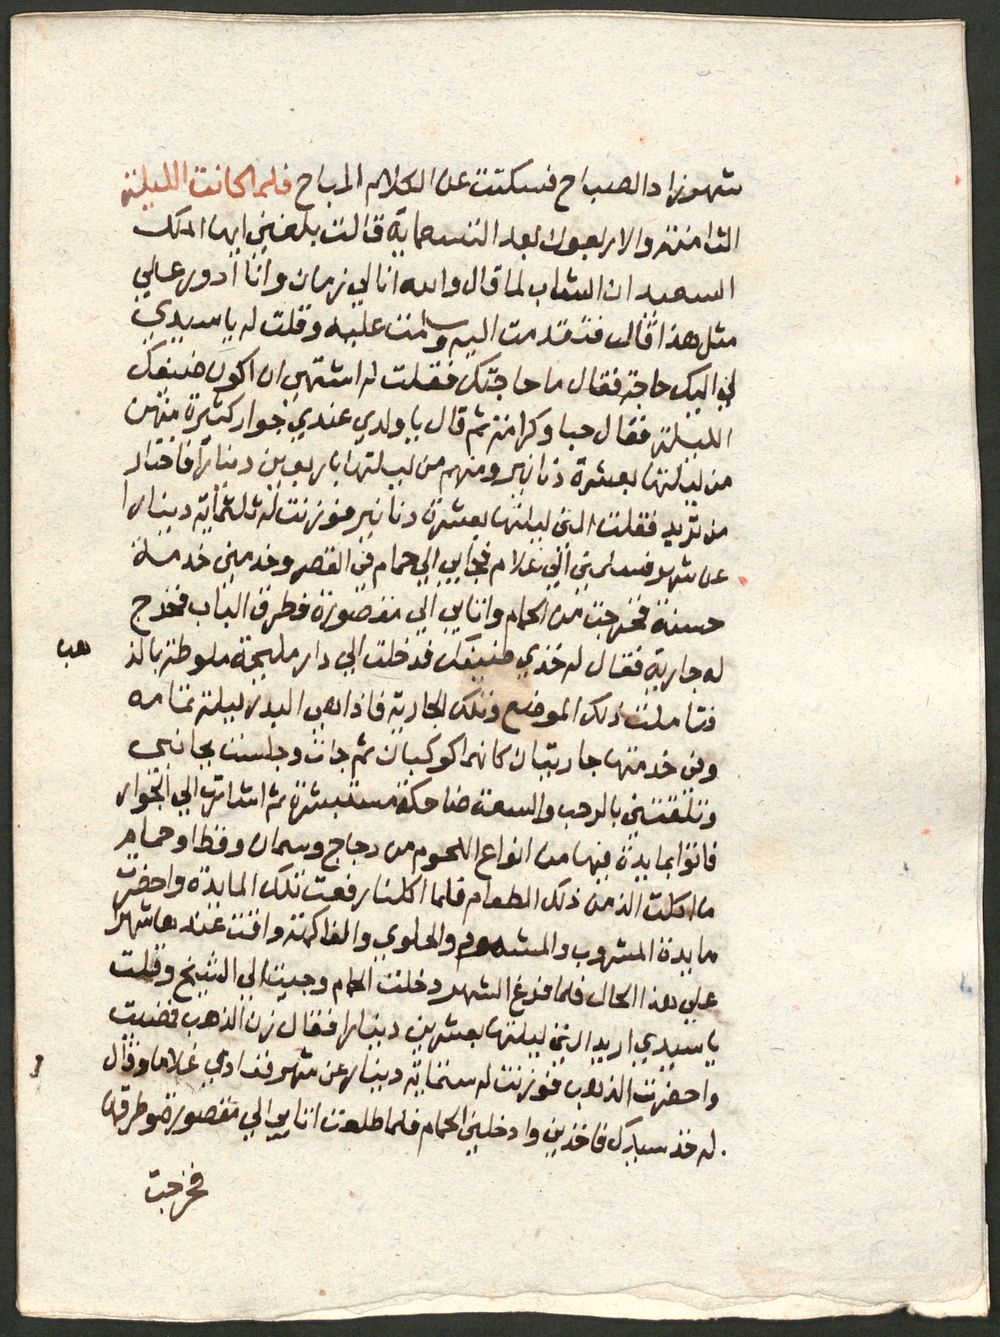 شهرزاد الصباح فسكتت عن الكلام المباح فلما كانت الليلة
الثامنة والاربعون بعد التسعماية قالت بلغني ايها الملك
السعيد ان الشاب لما قال والله انا لي زمان وانا ادور علي
مثل هذا قال فتقدمت اليه وسلمت عليه وقلت له يا سيدي
لي اليك حاجة فقال ما حاجتك فقلت له اشتهي ان اكون ضيفك
الليلة فقال حبا وكرامة ثم قال يا ولدي عندي جوار كثيرة منهن
من ليلتها بعشرة دنانير ومنهم من ليلتها باربعين دينارا فاختار
من تريد فقلت التي ليلتها بعشرة دنانير فوزنت له ثلثماية دينارا
عن شهر فسلمني الي غلام فجابي الي حمام في القصر وخدمني خدمة
حسنة فخرجت من الحمام واتابي الي مقصورة فطرق الباب فخرج
له جارية فقال له خذي ضيفك فدخلت الي دار مليحة ملوطة بالذ
هب
فتاملت ذلك الموضع وتلك الجارية فاذا هي البدر ليلة تمامه
وفي خدمتها جاريتان كانهما كوكبان ثم جات وجلست بجانبي
وتلقتني بالرحب والسعة ضاحكة مستبشرة ثم اشارت الي الجوار
فاتوا بمايدة فيها من انواع اللحوم من دجاج وسمان وقطا وحمام
ما اكلت الذ من ذلك الطعام فلما اكلنا رفعت تلك المايدة واحضرت
مايدة المشروب والمشموم والحلوي والفاكهة واقمت عندها شهرا
علي هذا الحال فلما فرغ الشهر دخلت الحمام وجيت الي الشيخ وقلت
يا سيدي اريد التي ليلتها بعشرين دينارا فقال زن الذهب فمضيت
واحضرت الذهب فوزنت له ستماية دينار عن شهر فنادي غلاما وقال
له خذ سيدك فاخذني وادخلني الحمام فلما طلعت اتابي الي مقصورة وطرقها
فخرجت